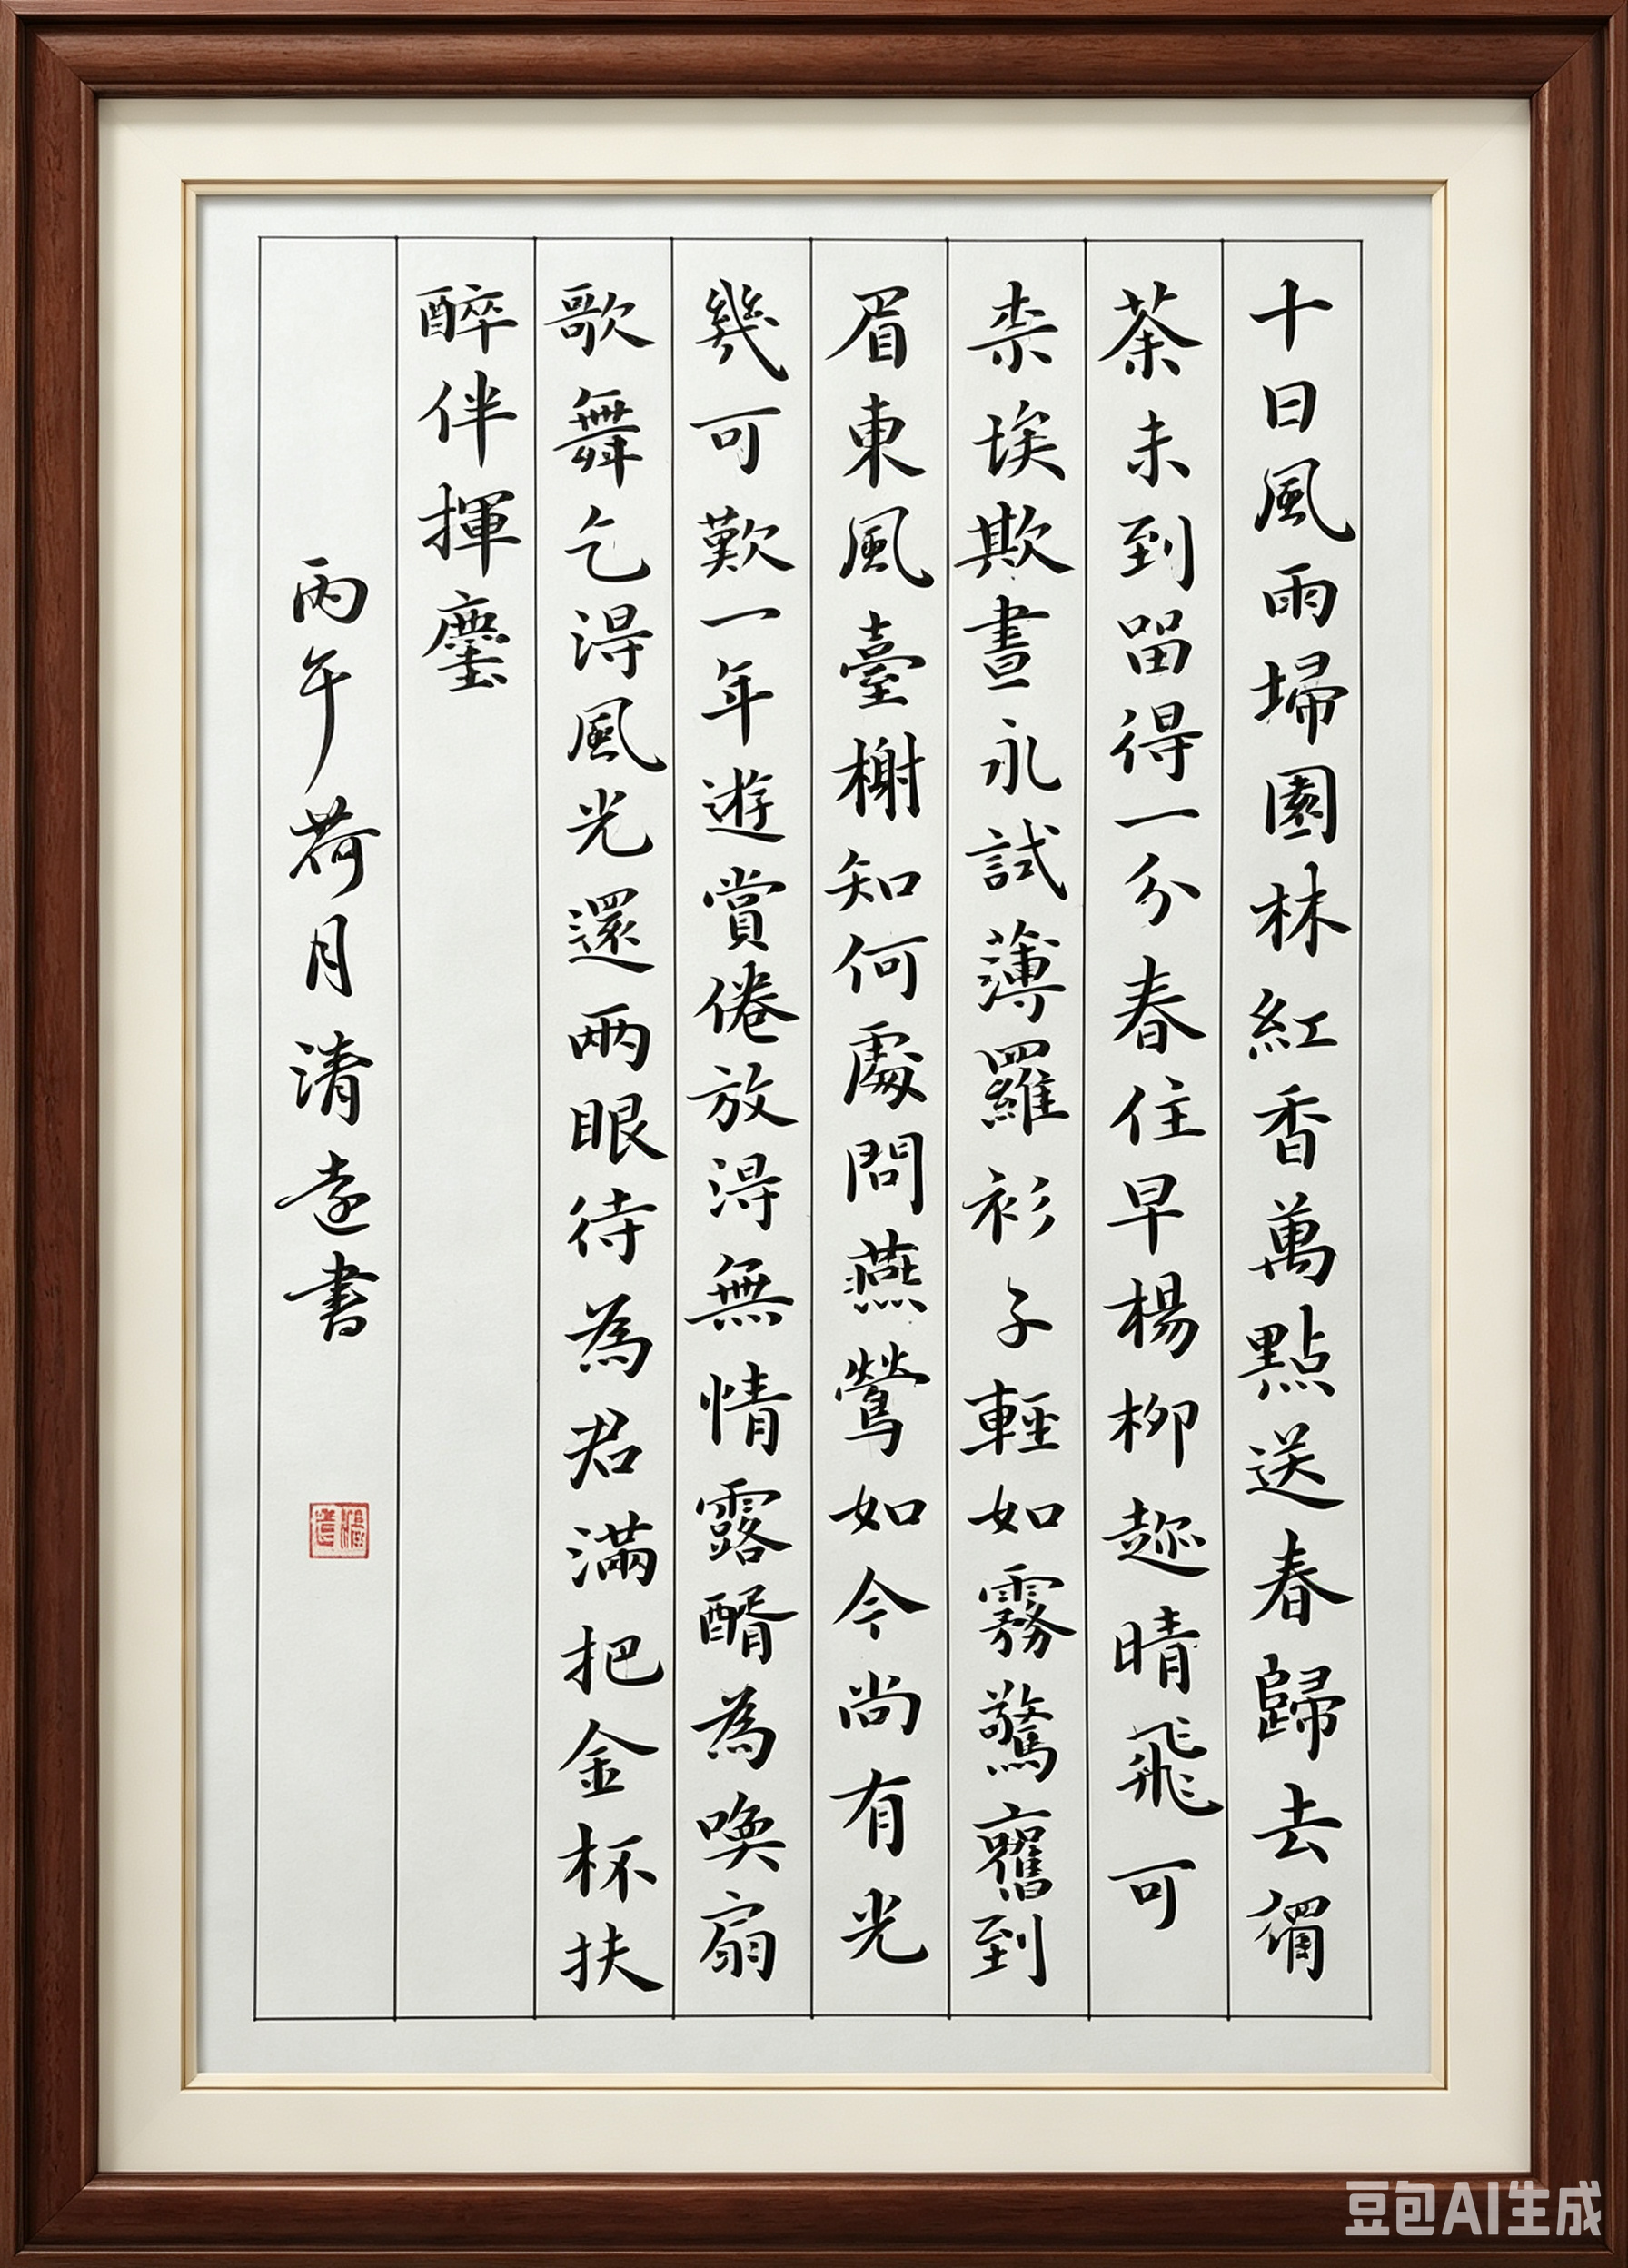 十日風雨埽園林紅香萬點送春歸去獨
荼未到留得一分春住早楊柳趂晴飛可
柰埃欺晝永試薄羅衫子輕如霧驚舊到
眉東風臺榭知何處問燕鶯如今尚有光
幾可歎一年遊賞倦放得無情露醑為喚扇
歌舞乞得風光還兩眼待為君滿把金杯扶
醉伴揮麈
丙午荷月清遠書
豆包AI生成